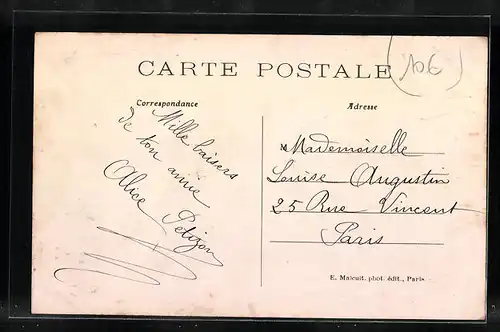 CARTE POSTALE
106
Correspondance
Mille baisers
de ton amie
Alice Petizon
Adresse
Mademoiselle
Louise Augustin
25 Rue Vincent
Paris
E. Malcuit. phot. édit., Paris